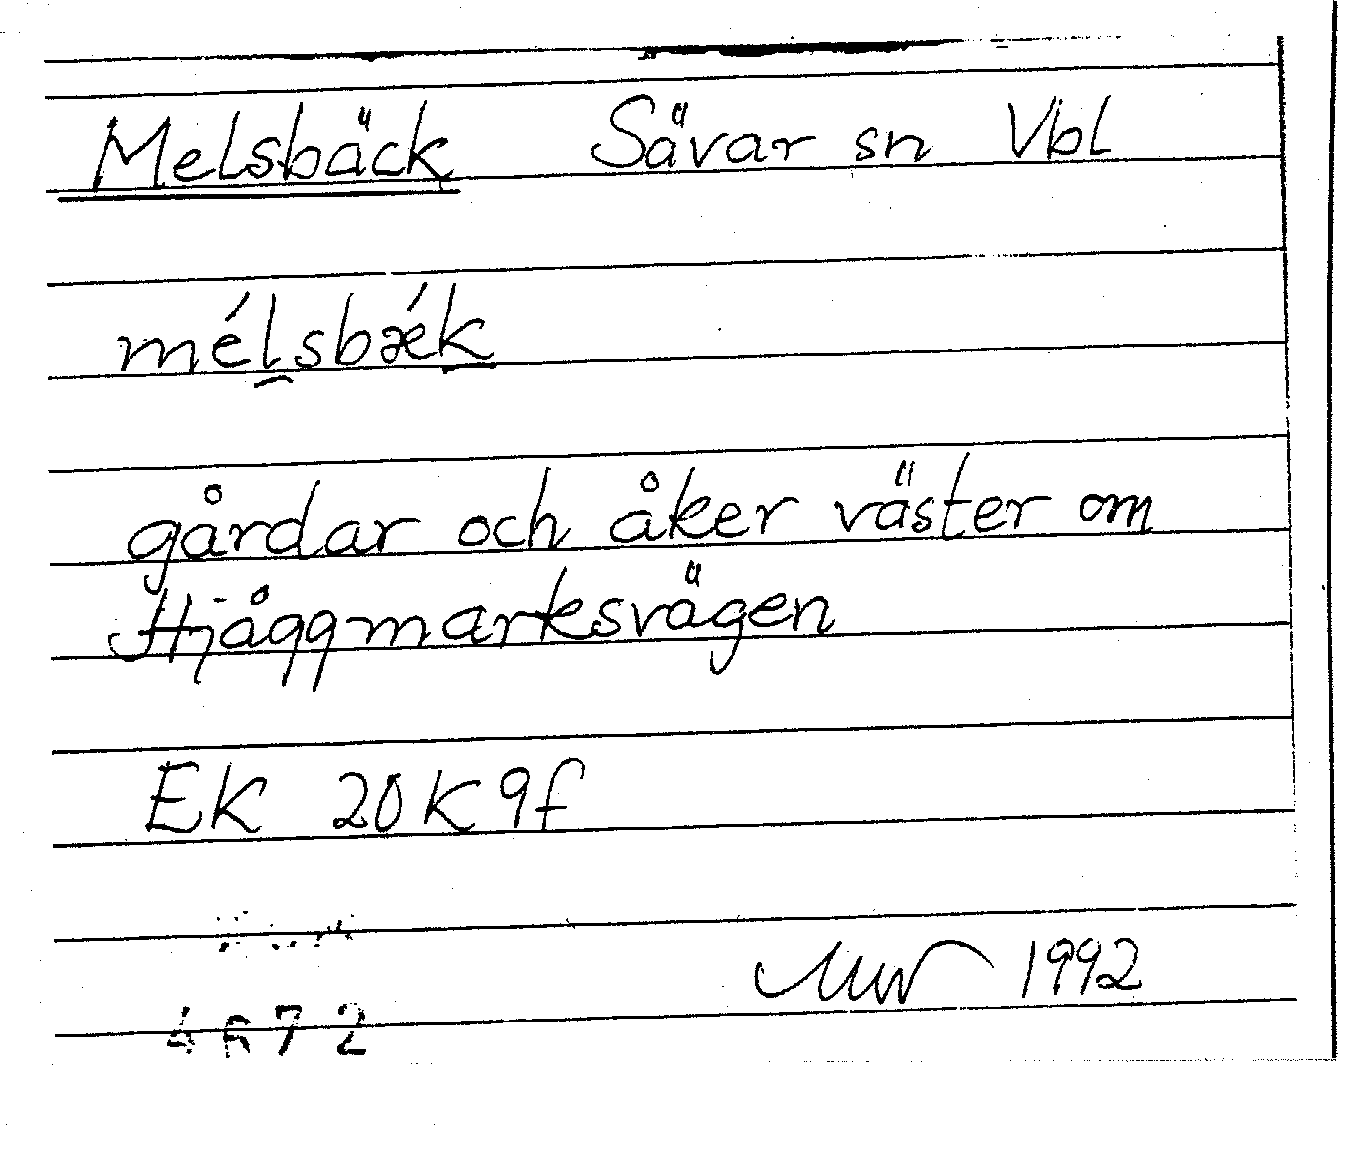 Melsbäck Sävar sn Vbl
mél̯sbǽk̲
gårdar och åker väster om
Hjåggmarksvägen
EK 20K 9f
1992
4672